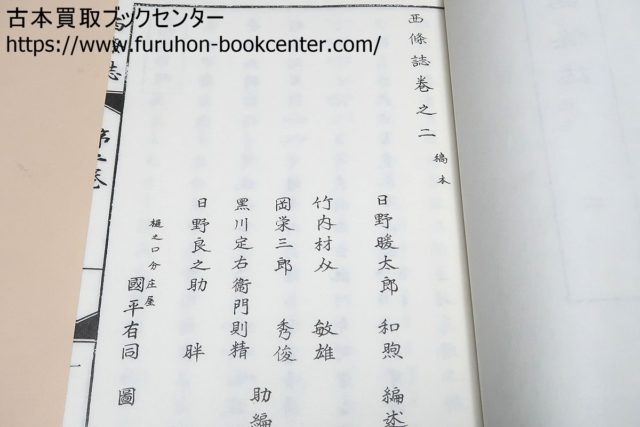 古本買取ブックセンター
https://www.furuhon-bookcenter.com/
西條誌巻之二 稿本
日野暖太郎 和煦 編述
竹内材 敏雄
岡栄三郎 秀俊
黒川定右衛門則精 助編
日野良之助 眫
樋之口分庄屋 國平有同 圖
誌 第二巻
一